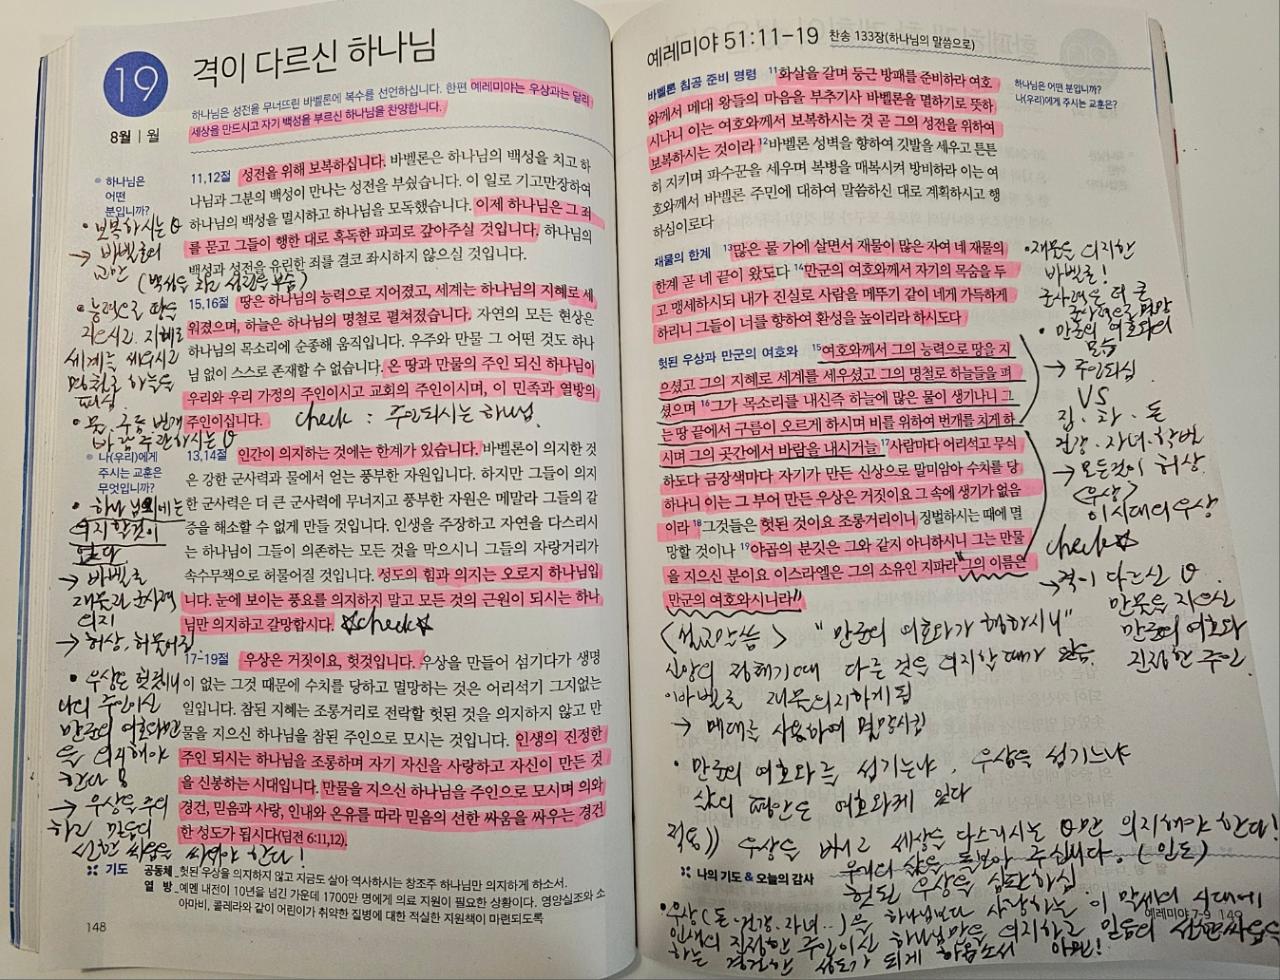 19
8월 | 월
격이 다르신 하나님
하나님은 성전을 무너뜨린 바벨론에 복수를 선언하십니다. 한편 예레미야는 우상과는 달리
세상을 만드시고 자기 백성을 부르신 하나님을 찬양합니다.
하나님은
어떤
분입니까?
• 보복하시는
→ 바벨론의
교만 (백성을 치고 성전을 부숨)
• 능력으로 땅을
지으시고 지혜로
세계를 세우시고
명철로 하늘을
펴심
• 물, 구름, 번개
바람 주관하시는
나(우리)에게
주시는 교훈은
무엇입니까?
• 하나님 외에는
의지할것이
없다
→ 바벨론
재물과 군사력
의지
→ 허상, 허물어짐
• 우상은 헛것이니
나의 주인이신
만군의 여호와만
을 의지해야
한다
→ 우상을
하고 믿음의
선한 싸움을 싸워야 한다!
11,12절 성전을 위해 보복하십니다. 바벨론은 하나님의 백성을 치고 하
나님과 그분의 백성이 만나는 성전을 부쉈습니다. 이 일로 기고만장하여
하나님의 백성을 멸시하고 하나님을 모독했습니다. 이제 하나님은 그 죄
를 묻고 그들이 행한 대로 혹독한 파괴로 갚아주실 것입니다. 하나님의
백성과 성전을 유린한 죄를 결코 좌시하지 않으실 것입니다.
15,16절 땅은 하나님의 능력으로 지어졌고, 세계는 하나님의 지혜로 세
워졌으며, 하늘은 하나님의 명철로 펼쳐졌습니다. 자연의 모든 현상은
하나님의 목소리에 순종해 움직입니다. 우주와 만물 그 어떤 것도 하나
님 없이 스스로 존재할 수 없습니다. 온 땅과 만물의 주인 되신 하나님이
우리와 우리 가정의 주인이시고 교회의 주인이시며, 이 민족과 열방의
주인이십니다. check : 주인되시는 하나님.
13,14절 인간이 의지하는 것에는 한계가 있습니다. 바벨론이 의지한 것
은 강한 군사력과 물에서 얻는 풍부한 자원입니다. 하지만 그들이 의지
한 군사력은 더 큰 군사력에 무너지고 풍부한 자원은 메말라 그들의 갈
증을 해소할 수 없게 만들 것입니다. 인생을 주장하고 자연을 다스리시
는 하나님이 그들이 의존하는 모든 것을 막으시니 그들의 자랑거리가
속수무책으로 허물어질 것입니다. 성도의 힘과 의지는 오로지 하나님입
니다. 눈에 보이는 풍요를 의지하지 말고 모든 것의 근원이 되시는 하나
님만 의지하고 갈망합시다. ☆check☆
17-19절 우상은 거짓이요, 헛것입니다. 우상을 만들어 섬기다가 생명
이 없는 그것 때문에 수치를 당하고 멸망하는 것은 어리석기 그지없는
일입니다. 참된 지혜는 조롱거리로 전락할 헛된 것을 의지하지 않고 만
물을 지으신 하나님을 참된 주인으로 모시는 것입니다. 인생의 진정한
주인 되시는 하나님을 조롱하며 자기 자신을 사랑하고 자신이 만든 것
을 신봉하는 시대입니다. 만물을 지으신 하나님을 주인으로 모시며 의와
경건, 믿음과 사랑, 인내와 온유를 따라 믿음의 선한 싸움을 싸우는 경건
한 성도가 됩시다(딤전 6:11,12).
기도 공동체 헛된 우상을 의지하지 않고 지금도 살아 역사하시는 창조주 하나님만 의지하게 하소서.
열 방 예멘 내전이 10년을 넘긴 가운데 1700만 명에게 의료 지원이 필요한 상황이다. 영양실조와 소
아마비, 콜레라와 같이 어린이가 취약한 질병에 대한 적실한 지원책이 마련되도록
148
예레미야 51:11-19 찬송 133장(하나님의 말씀으로)
바벨론 침공 준비 명령 11화살을 갈며 둥근 방패를 준비하라 여호
와께서 메대 왕들의 마음을 부추기사 바벨론을 멸하기로 뜻하
시나니 이는 여호와께서 보복하시는 것 곧 그의 성전을 위하여
보복하시는 것이라 12바벨론 성벽을 향하여 깃발을 세우고 튼튼
히 지키며 파수꾼을 세우며 복병을 매복시켜 방비하라 이는 여
호와께서 바벨론 주민에 대하여 말씀하신 대로 계획하시고 행
하심이로다
재물의 한계 13많은 물 가에 살면서 재물이 많은 자여 네 재물의
한계 곧 네 끝이 왔도다 14만군의 여호와께서 자기의 목숨을 두
고 맹세하시되 내가 진실로 사람을 메뚜기 같이 네게 가득하게
하리니 그들이 너를 향하여 환성을 높이리라 하시도다
헛된 우상과 만군의 여호와 15여호와께서 그의 능력으로 땅을 지
으셨고 그의 지혜로 세계를 세우셨고 그의 명철로 하늘들을 펴
셨으며 16그가 목소리를 내신즉 하늘에 많은 물이 생기나니 그
는 땅 끝에서 구름이 오르게 하시며 비를 위하여 번개를 치게 하
시며 그의 곳간에서 바람을 내시거늘 17사람마다 어리석고 무식
하도다 금장색마다 자기가 만든 신상으로 말미암아 수치를 당
하나니 이는 그 부어 만든 우상은 거짓이요 그 속에 생기가 없음
이라 18그것들은 헛된 것이요 조롱거리이니 징벌하시는 때에 멸
망할 것이나 19야곱의 분깃은 그와 같지 아니하시니 그는 만물
을 지으신 분이요 이스라엘은 그의 소유인 지파라 "그의 이름은
만군의 여호와시니라"
하나님은 어떤 분입니까?
나(우리)에게 주시는 교훈은?
• 재물을 의지한
바벨론!
군사력은 더 큰
군사력으로 멸망
• 만군의 여호와의
목숨
→ 주인되심
VS
집. 차. 돈
건강. 자녀. 학벌
→ 모든것이 허상
<우상>
이시대의 우상
check☆
→ 격이 다르신
만물을 지으신
만군의 여호와
진정한 주인
<설교말씀> "만군의 여호와가 행하시니"
신앙의 정체기때 다른 것을 의지할 때가 있음.
이바벨론 재물의지하게됨
→ 메대를 사용하여 멸망시킴
• 만군의 여호와를 섬기느냐, 우상을 섬기느냐
삶의 평안은 여호와께 있다
적용)) 우상을 버리고 세상을 다스리시는 만 의지해야 한다!
우리의 삶을 돌보아 주십니다. (인도)
헛된 우상을 심판하심
나의 기도 & 오늘의 감사
• 우상(돈.건강.자녀..)을 하나님보다 사랑하는 이 막세의 시대에
인생의 진정한 주인이신 하나님만을 의지하고 믿음의 선한싸움을
하는 경건한 성도가 되게 하옵소서 아멘!
예레미야 7-9 149